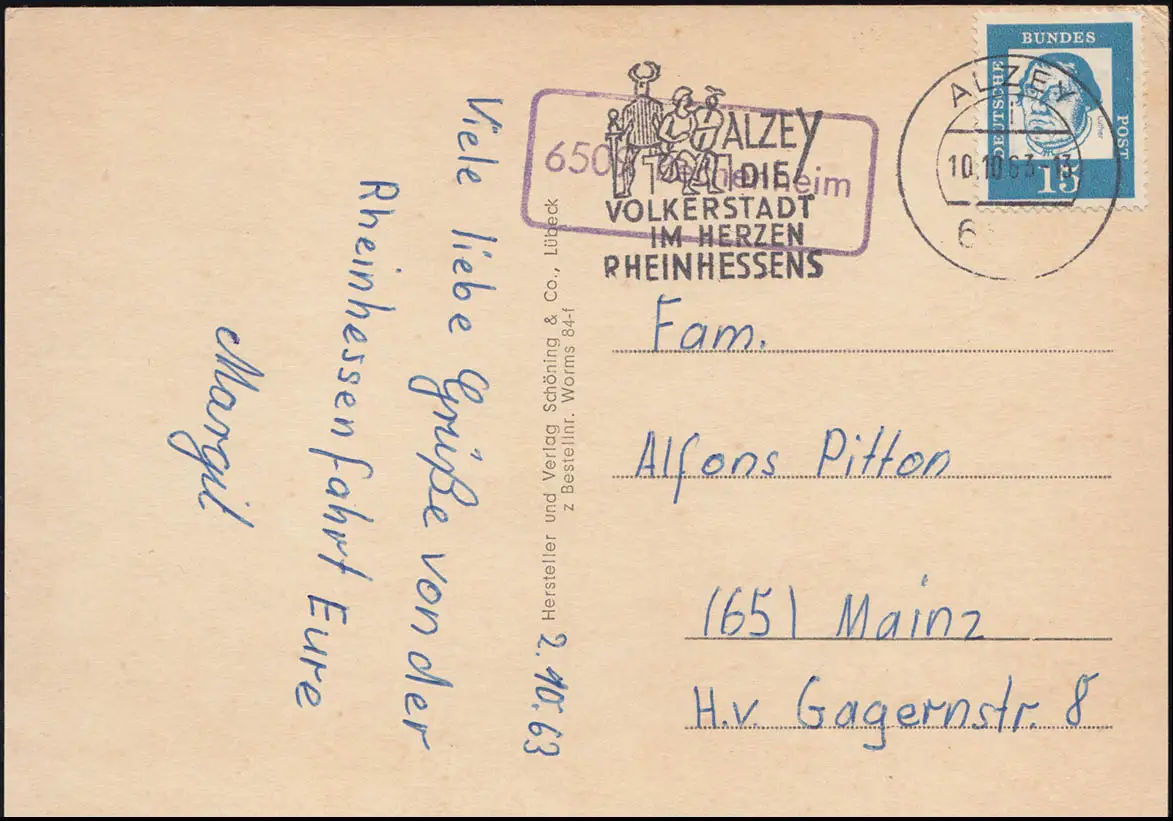 2.10.63
Viele liebe Grüße von der
Rheinhessenfahrt Eure
Margit
Hersteller und Verlag Schöning & Co., Lübeck
z Bestellnr. Worms 84-f
6509
heim
ALZEY
DIE
VOLKERSTADT
IM HERZEN
RHEINHESSENS
ALZEY
10.10.63-13
6
DEUTSCHE
BUNDES
POST
Luther
15
Fam.
Alfons Pitton
(65) Mainz
H.v. Gagernstr. 8